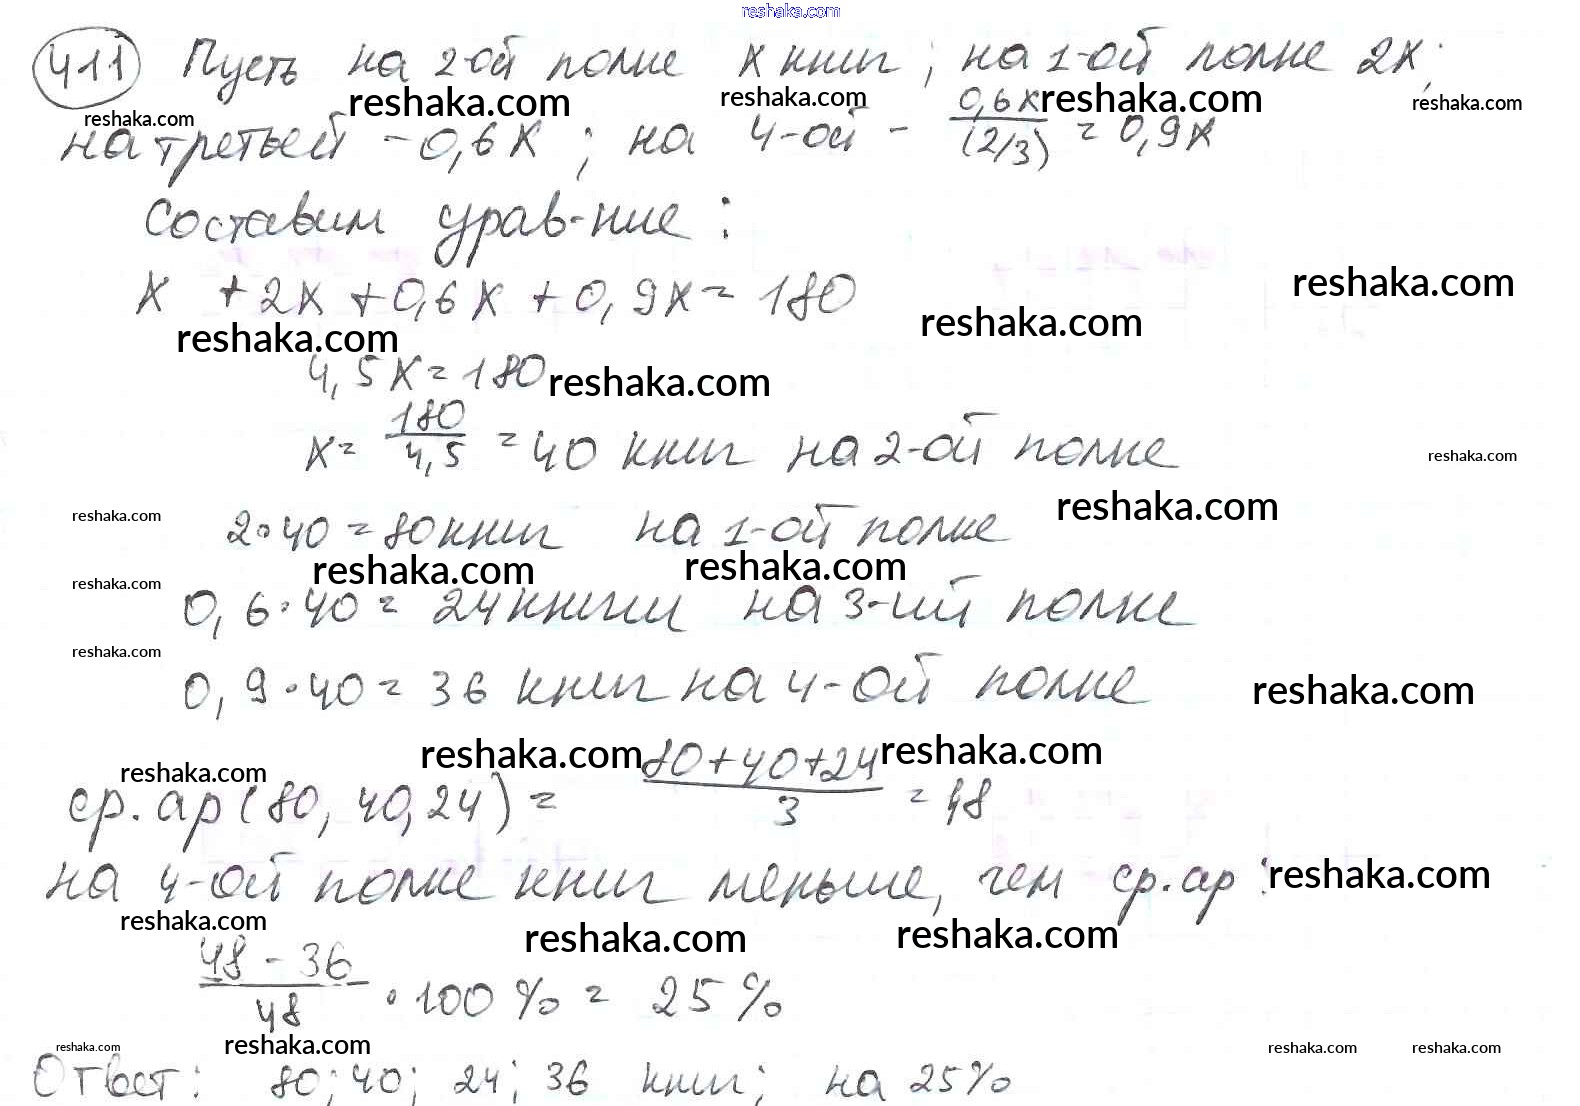 reshaka.com
411 Пусть на 2-ой полке x книг; на 1-ой полке 2x;
reshaka.com reshaka.com reshaka.com reshaka.com reshaka.com
на третьей - 0,6x; на 4-ой - 0,6x/(2/3) = 0,9x
Составим урав-ние:
x + 2x + 0,6x + 0,9x = 180
reshaka.com reshaka.com reshaka.com
4,5x = 180
reshaka.com
x = 180/4,5 = 40 книг на 2-ой полке
reshaka.com
2·40 = 80 книг на 1-ой полке
reshaka.com reshaka.com
reshaka.com reshaka.com reshaka.com
0,6·40 = 24 книги на 3-ий полке
reshaka.com
0,9·40 = 36 книг на 4-ой полке
reshaka.com
reshaka.com reshaka.com reshaka.com
ср. ар (80, 40, 24) = (80+40+24)/3 = 48
на 4-ой полке книг меньше, чем ср. ар:
reshaka.com
reshaka.com reshaka.com reshaka.com
(48 - 36)/48 · 100% = 25%
reshaka.com reshaka.com reshaka.com reshaka.com
Ответ: 80; 40; 24; 36 книг; на 25%